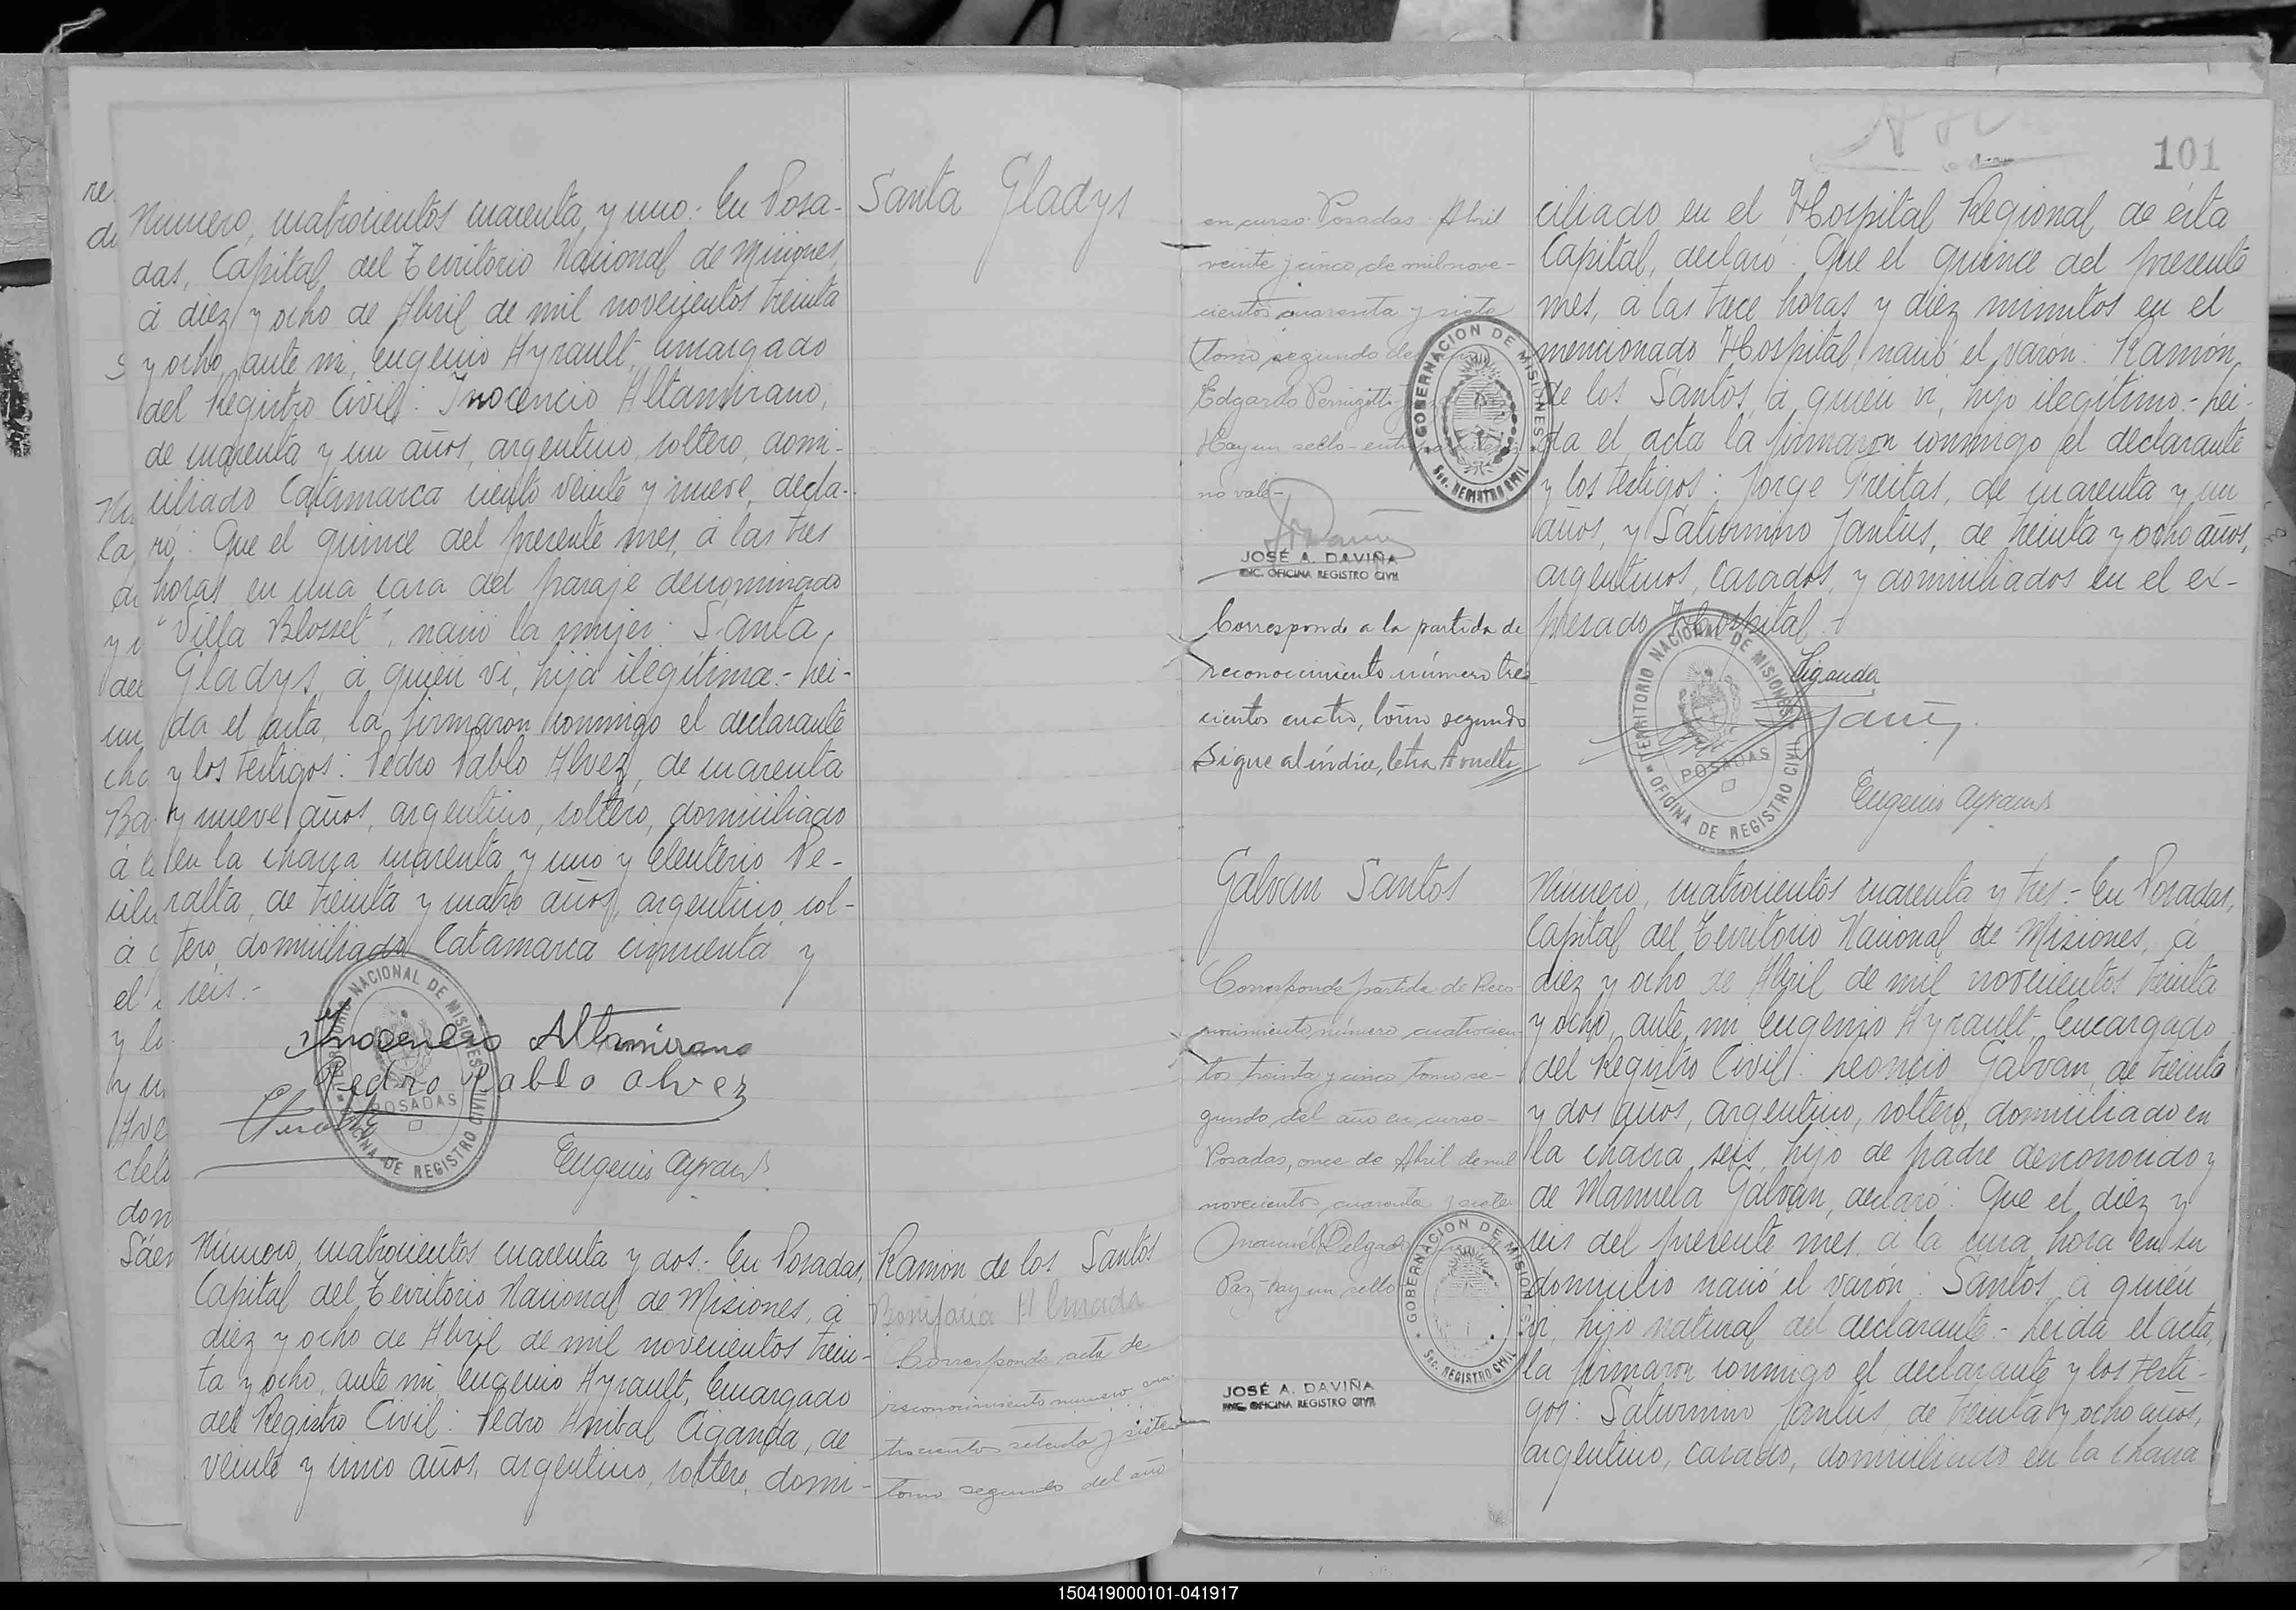 Número, cuatrocientos cuarenta y uno.- En Posa-
das, Capital del Territorio Nacional de Misiones,
á diez y ocho de Abril de mil novecientos treinta
y ocho, ante mi, Eugenio Ayrault, Encargado
del Registro Civil: Inocencio Altamirano,
de cuarenta y un años, argentino, soltero, domi-
ciliado Catamarca ciento veinte y nueve, decla-
ró: Que el quince del presente mes, á las tres
horas en una casa del paraje denominado
"Villa Blosset", nació la mujer: Santa
Gladys, á quien vi, hija ilegítima.- Leí-
da el acta, la firmaron conmigo el declarante
y los testigos: Pedro Pablo Alvez, de cuarenta
y nueve años, argentino, soltero, domiciliado
en la chacra cuarenta y uno y Eleuterio Pe-
ralta, de treinta y cuatro años, argentino, sol-
tero, domiciliado Catamarca cincuenta y
seis.-
Santa Gladys
TERRITORIO NACIONAL DE MISIONES
POSADAS
OFICINA DE REGISTRO CIVIL
Inocencio Altamirano
Pedro Pablo Alvez
Eugenio Ayrault
Número, cuatrocientos cuarenta y dos.- En Posadas,
Capital del Territorio Nacional de Misiones, á
diez y ocho de Abril de mil novecientos trein-
ta y ocho, ante mi, Eugenio Ayrault, Encargado
del Registro Civil: Pedro Anibal Ciganda, de
veinte y cinco años, argentino, soltero, domi-
Ramón de los Santos
Bonifacia Almada
Corresponde acta de
reconocimiento numero cua-
trocientos setenta y siete
tomo segundo del año
101
en curso. Posadas Abril
veinte y cinco de mil nove-
cientos cuarenta y siete
(tomo segundo de
Edgardo
Hay un sello-
no vale-
GOBERNACION DE MISIONES
Sec. REGISTRO CIVIL
JOSÉ A. DAVIÑA
ENC. OFICINA REGISTRO CIVIL
Corresponde a la partida de
reconocimiento número tres
cientos cuatro, tomo segundo
Sigue al índice, letra A vuelta
ciliado en el Hospital Regional de ésta
Capital, declaró: Que el quince del presente
mes, á las trece horas y diez minutos en el
mencionado Hospital, nació el varón: Ramón
de los Santos, á quien vi, hijo ilegítimo.- Leí-
da el acta la firmaron conmigo el declarante
y los testigos: Jorge Freitas, de cuarenta y un
años, y Saturnino Jantus, de treinta y ocho años,
argentinos, casados, y domiciliados en el ex-
presado Hospital.-
TERRITORIO NACIONAL DE MISIONES
POSADAS
OFICINA DE REGISTRO CIVIL
Ciganda
Eugenio Ayrault
Galvan Santos
Corresponde partida de Reco-
nocimiento, número cuatrocien
tos treinta y cinco tomo se-
gundo del año en curso-
Posadas, once de Abril de mil
novecientos cuarenta y siete
Manuel Delgado
Paz- hay un sello
GOBERNACION DE MISIONES
Sec. REGISTRO CIVIL
JOSÉ A. DAVIÑA
ENC. OFICINA REGISTRO CIVIL
Número, cuatrocientos cuarenta y tres.- En Posadas,
Capital del Territorio Nacional de Misiones, á
diez y ocho de Abril de mil novecientos treinta
y ocho, ante mi Eugenio Ayrault Encargado
del Registro Civil: Leoncio Galvan, de treinta
y dos años, argentino, soltero, domiciliado en
la chacra seis, hijo de padre desconocido y
de Manuela Galvan, declaró: Que el diez y
seis del presente mes, á la una hora en su
domicilio nació el varón: Santos, á quien
vi, hijo natural del declarante.- Leída el acta,
la firmaron conmigo el declarante y los testi-
gos: Saturnino Jantus, de treinta y ocho años,
argentino, casado, domiciliado en la chacra
150419000101-041917